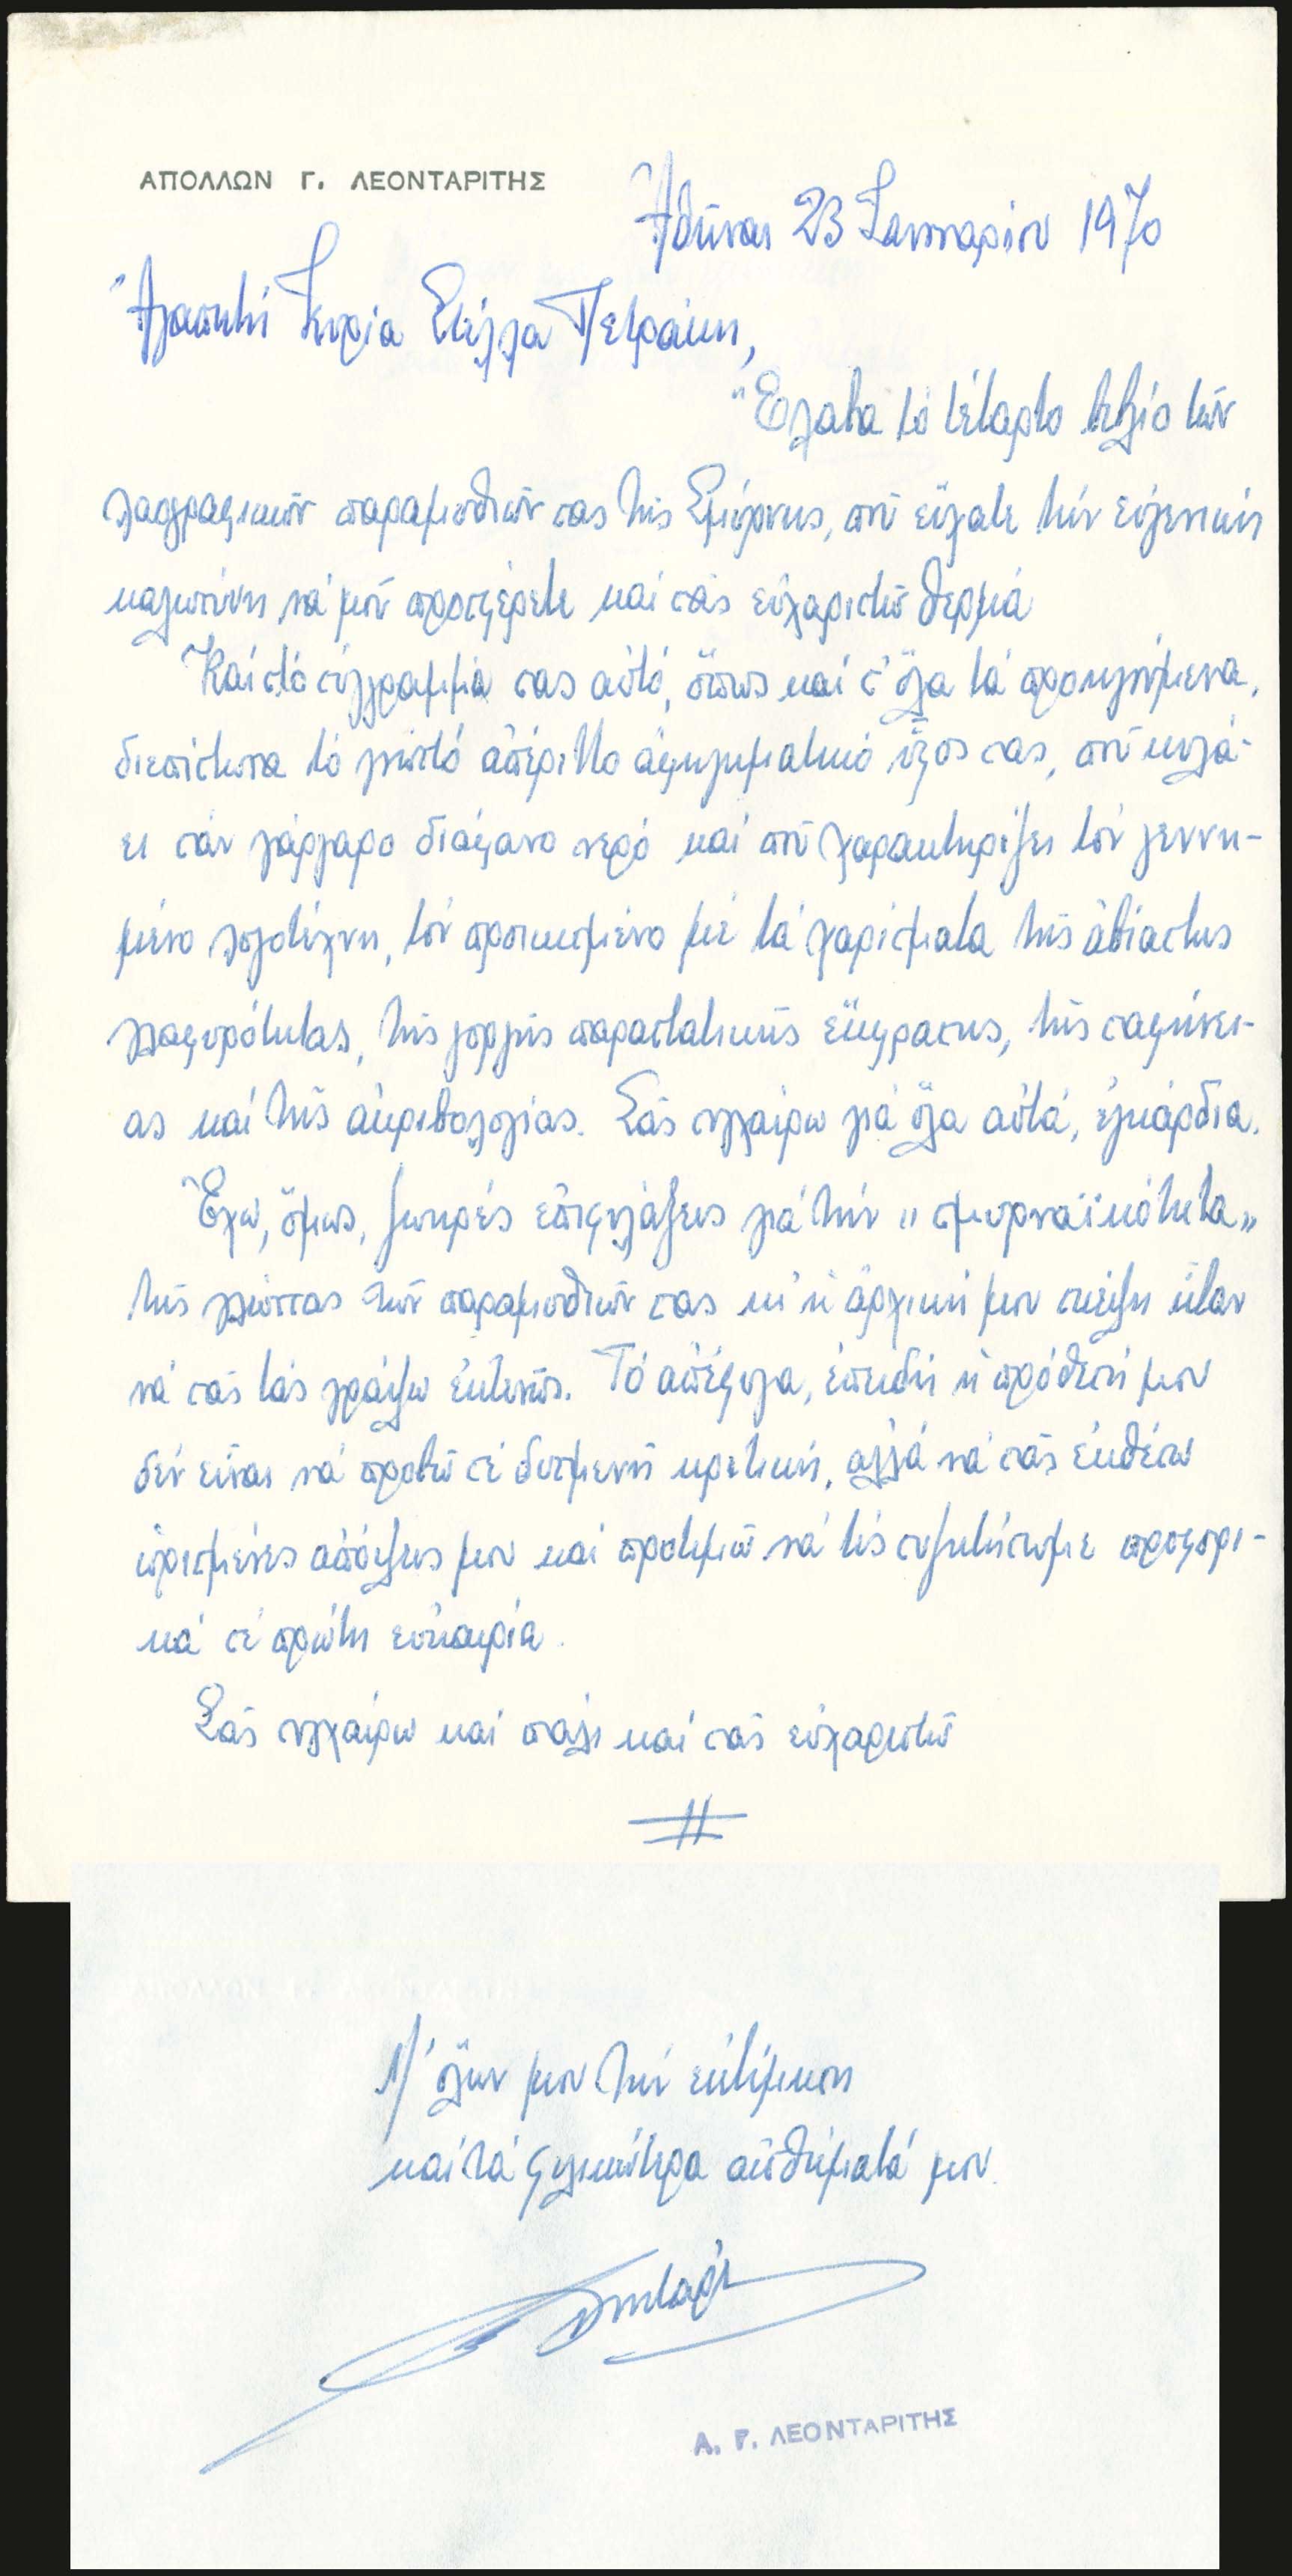 ΑΠΟΛΛΩΝ Γ. ΛΕΟΝΤΑΡΙΤΗΣ
Ἀθῆναι 23 Ἰανουαρίου 1970
Ἀγαπητή Κυρία Στέλλα Πετράκη,
Ἔλαβα τό τέταρτο βιβλίο τῶν
λαογραφικῶν παραμυθιῶν σας τῆς Σμύρνης, πού εἴχατε τήν εὐγενική
καλωσύνη νά μοῦ προσφέρετε καί σᾶς εὐχαριστῶ θερμά
Καί στό σύγγραμμά σας αὐτό, ὅπως καί σ' ὅλα τά προηγούμενα,
διεπίστωσα τό γνωστό ἀπέριττο ἀφηγηματικό ὕφος σας, πού κυλά-
ει σάν γάργαρο διάφανο νερό καί πού χαρακτηρίζει τόν γεννη-
μένο λογοτέχνη, τόν προικισμένο μέ τά χαρίσματα τῆς ἀβίαστης
γλαφυρότητας, τῆς γοργῆς παραστατικῆς ἔκφρασης, τῆς σαφήνει-
ας καί τῆς ἀκριβολογίας. Σᾶς συγχαίρω γιά ὅλα αὐτά, ἐγκάρδια.
Ἔχω, ὅμως, ζωηρές ἐπιφυλάξεις γιά τήν «σμυρναϊκότητα»
τῆς γλώσσας τῶν παραμυθιῶν σας κι' ἡ ἀρχική μου σκέψη ἦταν
νά σᾶς τάς γράψω ἐκτενῶς. Τό ἀπέφυγα, ἐπειδή ἡ πρόθεσή μου
δέν εἶναι νά προβῶ σέ δυσμενῆ κριτική, ἀλλά νά σᾶς ἐκθέσω
ὡρισμένες ἀπόψεις μου καί προτιμῶ νά τίς συζητήσωμε προφορι-
κά σέ πρώτη εὐκαιρία.
Σᾶς συγχαίρω καί πάλι καί σᾶς εὐχαριστῶ
Μ' ὅλην μου τήν ἐκτίμηση
καί τά φιλικώτερα αἰσθήματά μου.
Α. Γ. ΛΕΟΝΤΑΡΙΤΗΣ